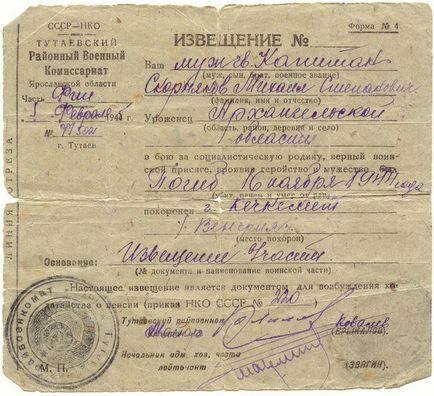 СССР—НКО
ТУТАЕВСКИЙ
Районный Военный
Комиссариат
Ярославской области
Часть
Февраля 1945 г.
№
г. Тутаев
ЛИНИЯ ОТРЕЗА
Форма № 4
ИЗВЕЩЕНИЕ №
Ваш муж гв. Капитан
(муж, сын, брат, военное звание)
Михаил Степанович
(фамилия, имя и отчество)
Уроженец Архангельской
(область, район, деревня и село)
области
в бою за социалистическую родину, верный воин-
ской присяге, проявив геройство и мужество, был
Погиб 16 ноября 1944 года
(убит, ранен и умер от ран)
похоронен г. Кечкемет
(место похорон)
Основание: Извещение Части
(№ документа и наименование воинской части)
Настоящее извещение является документом для возбуждения хо-
датайства о пенсии (приказ НКО СССР № 220)
Тутаевский райвоенком
Майор
Ковалев
Начальник адм. хоз. части
лейтенант
(ЗВЯГИН)
М. П.